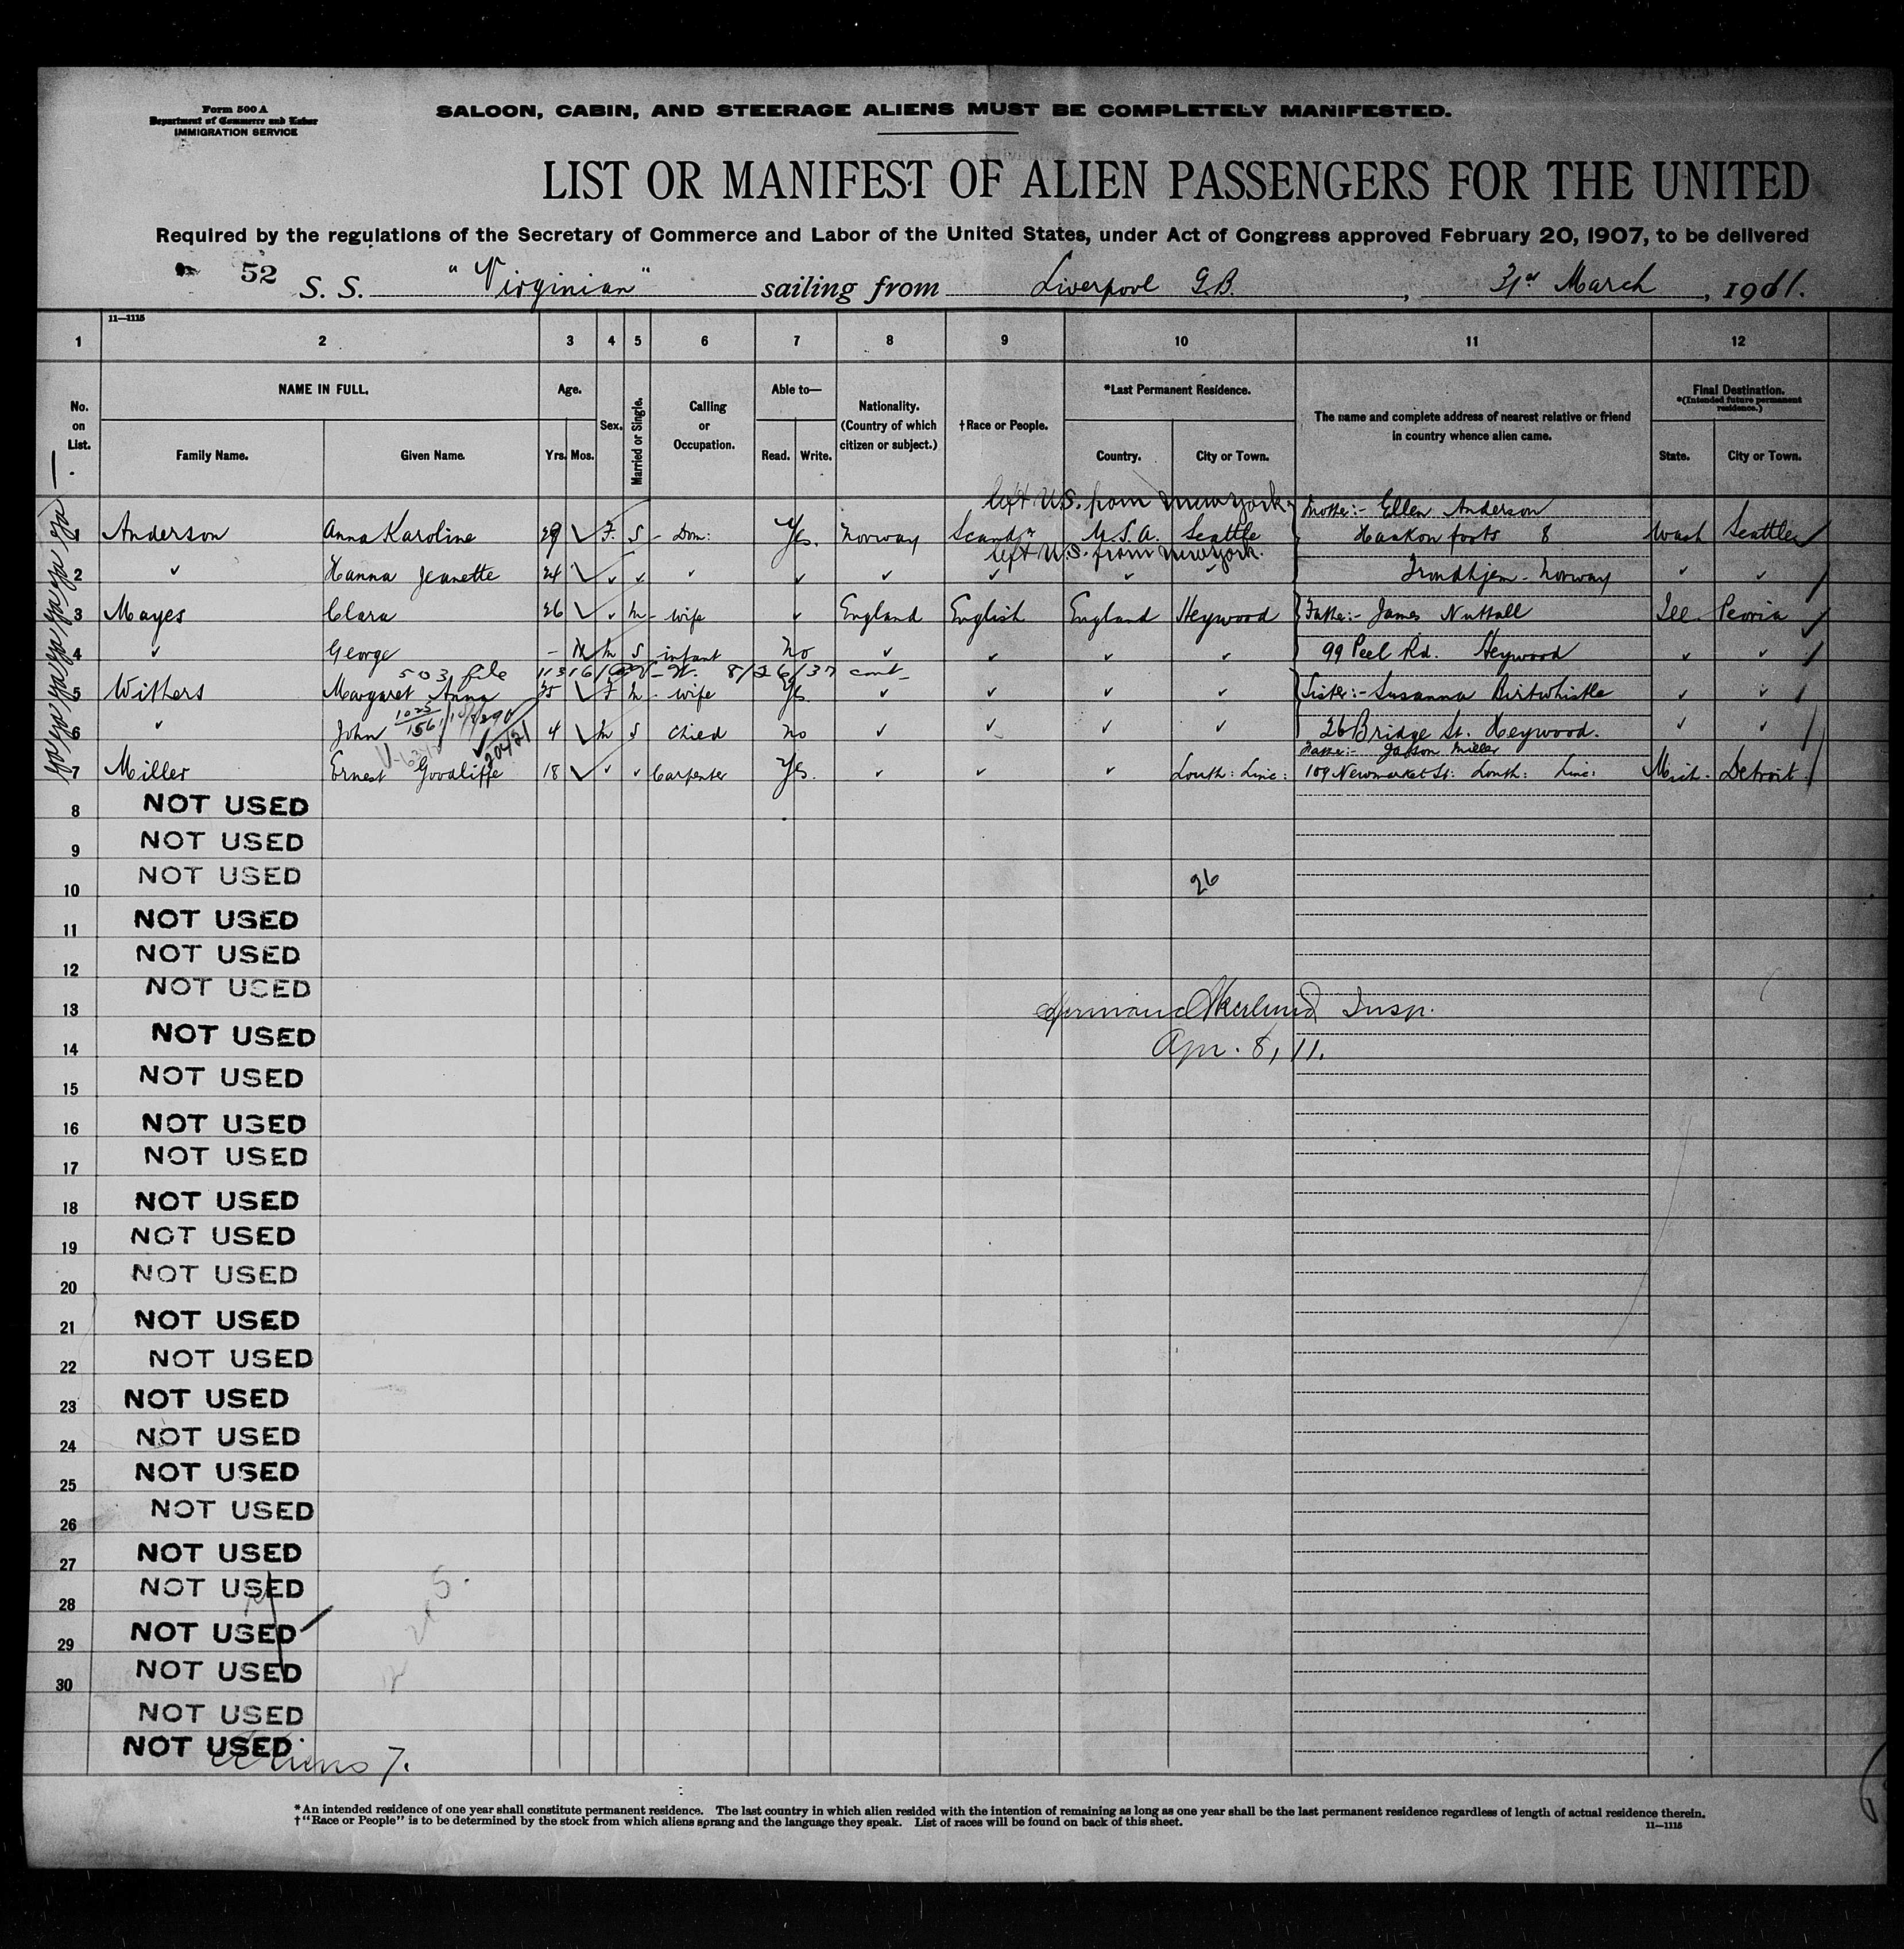 Form 500 A
Department of Commerce and Labor
IMMIGRATION SERVICE
SALOON, CABIN, AND STEERAGE ALIENS MUST BE COMPLETELY MANIFESTED.
LIST OR MANIFEST OF ALIEN PASSENGERS FOR THE UNITED
Required by the regulations of the Secretary of Commerce and Labor of the United States, under Act of Congress approved February 20, 1907, to be delivered
52 S. S. "Virginian" sailing from Liverpool G.B., 31st March, 1911.
11—1115
1 2 3 4 5 6 7 8 9 10 11 12
No. on List. NAME IN FULL. Age. Sex. Married or Single. Calling or Occupation. Able to— Nationality. (Country of which citizen or subject.) †Race or People. *Last Permanent Residence. The name and complete address of nearest relative or friend in country whence alien came. Final Destination. *(Intended future permanent residence.)
Family Name. Given Name. Yrs. Mos. Read. Write. Country. City or Town. State. City or Town.
left U.S. from New York. Mother:- Ellen Anderson
1 Anderson Anna Karoline 29 ✓ F. S - Dom: Yes. Norway Scandn U.S.A. Seattle Haakon 8 Wash Seattle
left U.S. from New York.
2 ✓ Hanna Jeanette 24 ✓ ✓ ✓ ✓ ✓ ✓ ✓ ✓ ✓ Trondhjem - Norway ✓ ✓
3 Mayes Clara 26 ✓ ✓ m - wife ✓ England English England Heywood Father:- James Nuttall Ill Peoria
4 ✓ George - m S infant No ✓ ✓ ✓ ✓ 99 Peel Rd. Heywood ✓ ✓
503 file 8/26/37 cont_
5 Withers Margaret Anna 35 ✓ F m - wife Yes. ✓ ✓ ✓ ✓ Sister:- Susanna Birtwhistle ✓ ✓
6 ✓ John 4 m S Child No ✓ ✓ ✓ ✓ 26 Bridge St. Heywood. ✓ ✓
Father:- Miller
7 Miller Ernest Goodliffe 18 ✓ ✓ ✓ Carpenter Yes. ✓ ✓ ✓ Louth: Linc: 109 Newmarket St: Louth: Linc: Mich. Detroit.
8 NOT USED
9 NOT USED
10 NOT USED 26
11 NOT USED
12 NOT USED
13 NOT USED
Insp.
14 NOT USED Apr. 8, 11.
15 NOT USED
16 NOT USED
17 NOT USED
18 NOT USED
19 NOT USED
20 NOT USED
21 NOT USED
22 NOT USED
23 NOT USED
24 NOT USED
25 NOT USED
26 NOT USED
27 NOT USED
28 NOT USED
29 NOT USED
30 NOT USED
NOT USED
NOT USED
Aliens 7.
*An intended residence of one year shall constitute permanent residence. The last country in which alien resided with the intention of remaining as long as one year shall be the last permanent residence regardless of length of actual residence therein.
†"Race or People" is to be determined by the stock from which aliens sprang and the language they speak. List of races will be found on back of this sheet.
11—1115